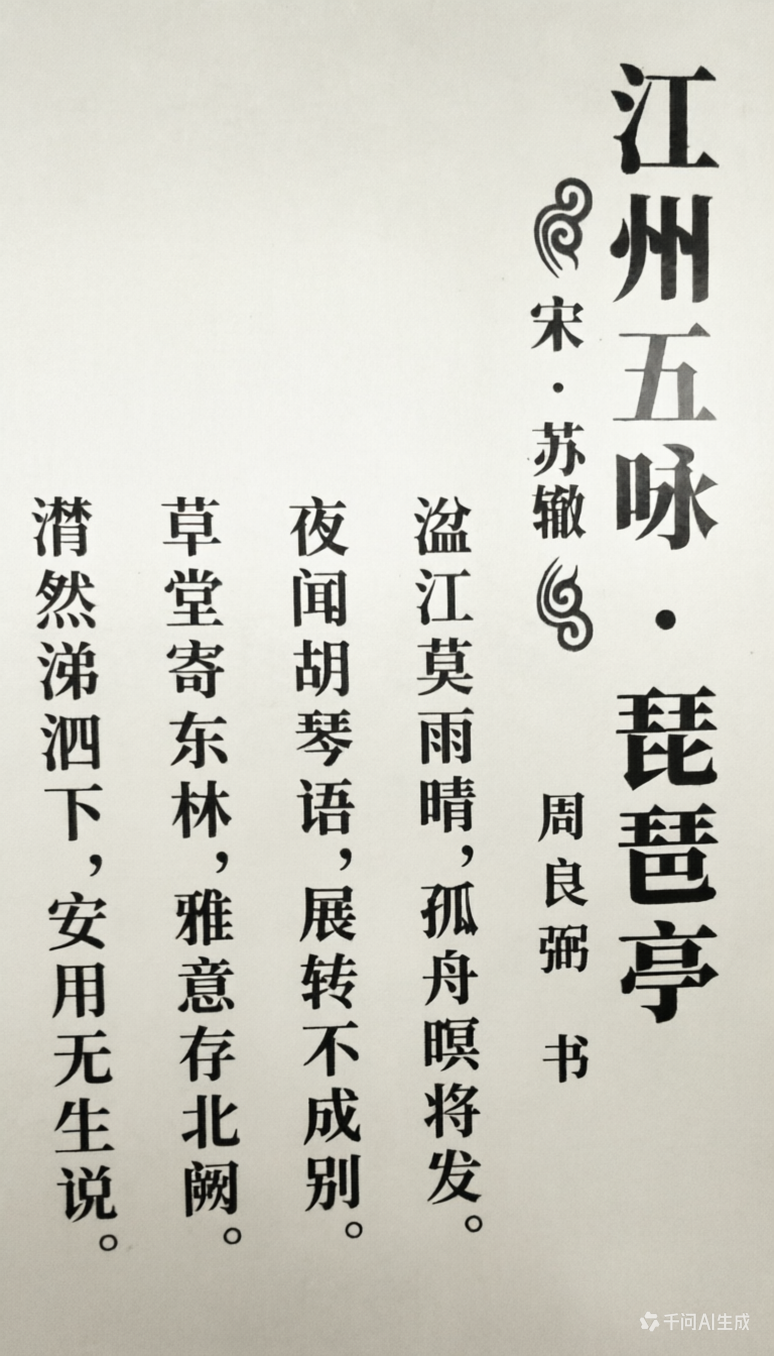 江州五咏·琵琶亭
宋·苏辙
周良弼 书
湓江莫雨晴，孤舟暝将发。
夜闻胡琴语，展转不成别。
草堂寄东林，雅意存北阙。
潸然涕泗下，安用无生说。
千问AI生成